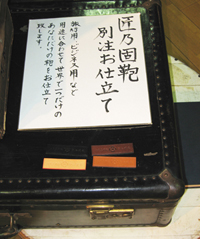 匠乃固鞄
別注お仕立て
旅行用、ビジネス用など
用途に合わせて世界で一つだけの
あなただけの鞄をお仕立て
致します。